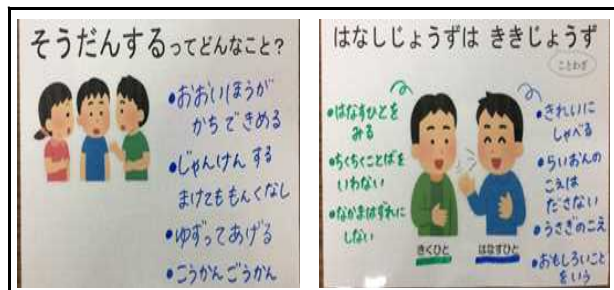 そうだんするってどんなこと?
•おおいほうが
かちできめる
•じゃんけんする
まけてももんくなし
•ゆずってあげる
•こうかんごうかん
はなしじょうずは ききじょうず
ことわざ
•はなすひとを
みる
•ちくちくことばを
いわない
•なかまはずれに
しない
きくひと
はなすひと
•きれいに
しゃべる
•らいおんの
こえは
ださない
•うさぎのこえ
•おもしろいこと
をいう